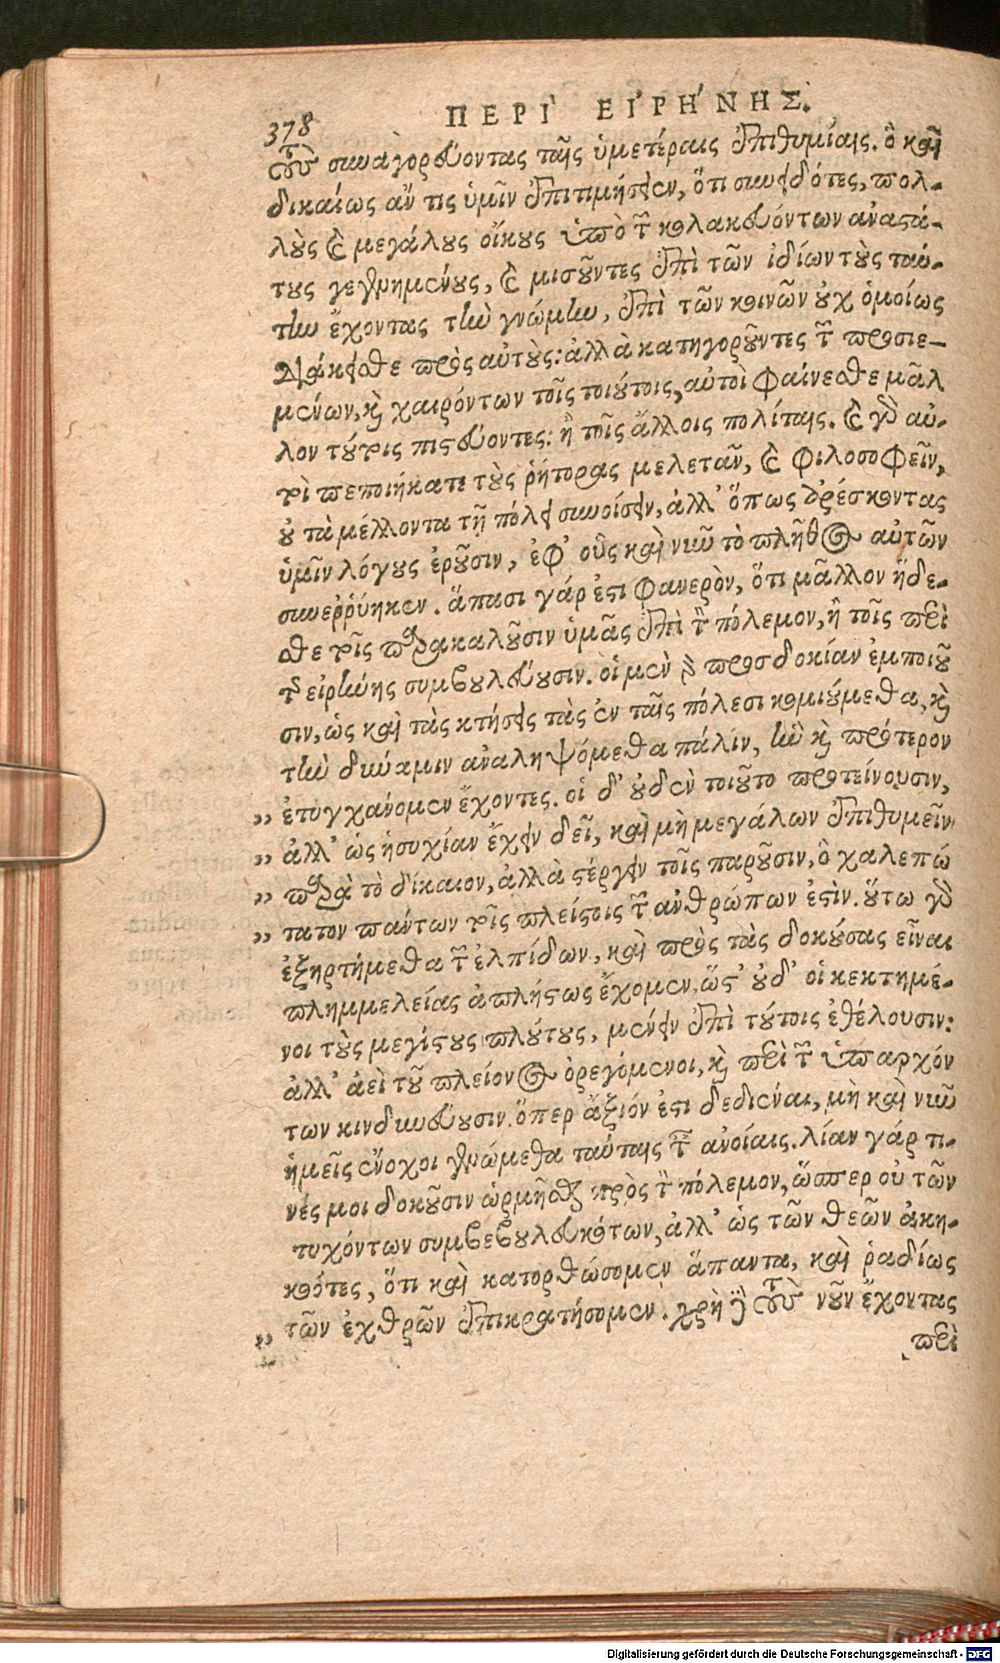 378
ΠΕΡΙ` ΕΙ᾿ΡΗ´ΝΗΣ.
τοὺς συναγορεύοντας ταῖς ὑμετέραις ἐπιθυμίαις. ὃ καὶ
δικαίως ἄν τις ὑμῖν ἐπιτιμήσειεν, ὅτι συνειδότες, πολ-
λοὺς καὶ μεγάλους οἴκους ὑπὸ τῶν κολακευόντων ἀναστά-
τους γεγενημένους, καὶ μισοῦντες ἐπὶ τῶν ἰδίων τοὺς ταύ-
την ἔχοντας τὴν γνώμην, ἐπὶ τῶν κοινῶν οὐχ ὁμοίως
διάκεισθε πρὸς αὐτούς: ἀλλὰ κατηγοροῦντες τῶν προσιε-
μένων, καὶ χαιρόντων τοῖς τοιούτοις, αὐτοὶ φαίνεσθε μᾶλ
λον τούτοις πιστεύοντες: ἢ τοῖς ἄλλοις πολίταις. καὶ γὰρ αὐ-
τοὶ πεποιήκατε τοὺς ῥήτορας μελετᾶν, καὶ φιλοσοφεῖν,
οὐ τὰ μέλλοντα τῇ πόλει συνοίσειν, ἀλλ' ὅπως ἀρέσκοντας
ὑμῖν λόγους ἐροῦσιν, ἐφ' οὓς καὶ νῦν τὸ πλῆθος αὐτῶν
συνεῤῥύηκεν. ἅπασι γάρ ἐστι φανερὸν, ὅτι μᾶλλον ἥδε-
σθε τοῖς παρακαλοῦσιν ὑμᾶς ἐπὶ τὸν πόλεμον, ἢ τοῖς περὶ
τῆς εἰρήνης συμβουλεύουσιν. οἱ μὲν γὰρ προσδοκίαν ἐμποιοῦ
σιν, ὡς καὶ τὰς κτήσεις τὰς ἐν ταῖς πόλεσι κομιούμεθα, καὶ
τὴν δύναμιν ἀναληψόμεθα πάλιν, ἣν καὶ πρότερον
„ ἐτυγχάνομεν ἔχοντες. οἱ δ' οὐδὲν τοιοῦτο προτείνουσιν,
„ ἀλλ' ὡς ἡσυχίαν ἔχειν δεῖ, καὶ μὴ μεγάλων ἐπιθυμεῖν
„ παρὰ τὸ δίκαιον, ἀλλὰ στέργειν τοῖς παροῦσιν, ὃ χαλεπώ
„ τατον πάντων τοῖς πλείστοις τῶν ἀνθρώπων ἐστὶν. οὕτω γὰρ
ἐξηρτήμεθα τῶν ἐλπίδων, καὶ πρὸς τὰς δοκούσας εἶναι
πλημμελείας ἀπλήστως ἔχομεν, ὥστ' οὐδ' οἱ κεκτημέ-
νοι τοὺς μεγίστους πλούτους, μένειν ἐπὶ τούτοις ἐθέλουσιν:
ἀλλ' ἀεὶ τοῦ πλείονος ὀρεγόμενοι, καὶ περὶ τῶν ὑπαρχόν
των κινδυνεύουσιν. ὅπερ ἄξιόν ἐστι δεδιέναι, μὴ καὶ νῦν
ἡμεῖς ἔνοχοι γενώμεθα ταύταις τῶν ἀνοίαις. λίαν γάρ τι-
νές μοι δοκοῦσιν ὡρμῆσθαι πρὸς τὸν πόλεμον, ὥσπερ οὐ τῶν
τυχόντων συμβεβουλευκότων, ἀλλ' ὡς τῶν θεῶν ἀκη-
κοότες, ὅτι καὶ κατορθώσομεν ἅπαντα, καὶ ῥᾳδίως
„ τῶν ἐχθρῶν ἐπικρατήσομεν. χρὴ δὲ τοὺς νοῦν ἔχοντας
περὶ
Digitalisierung gefördert durch die Deutsche Forschungsgemeinschaft - DFG